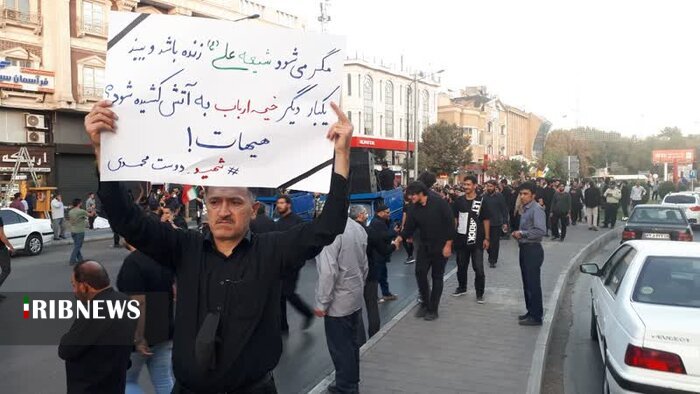 مگر می شود شیعه علی (ع) زنده باشد و ببیند
یکبار دیگر خیمه ارباب به آتش کشیده شود؟
هیهات!
#شهید_دوست محمدی
IRIBNEWS